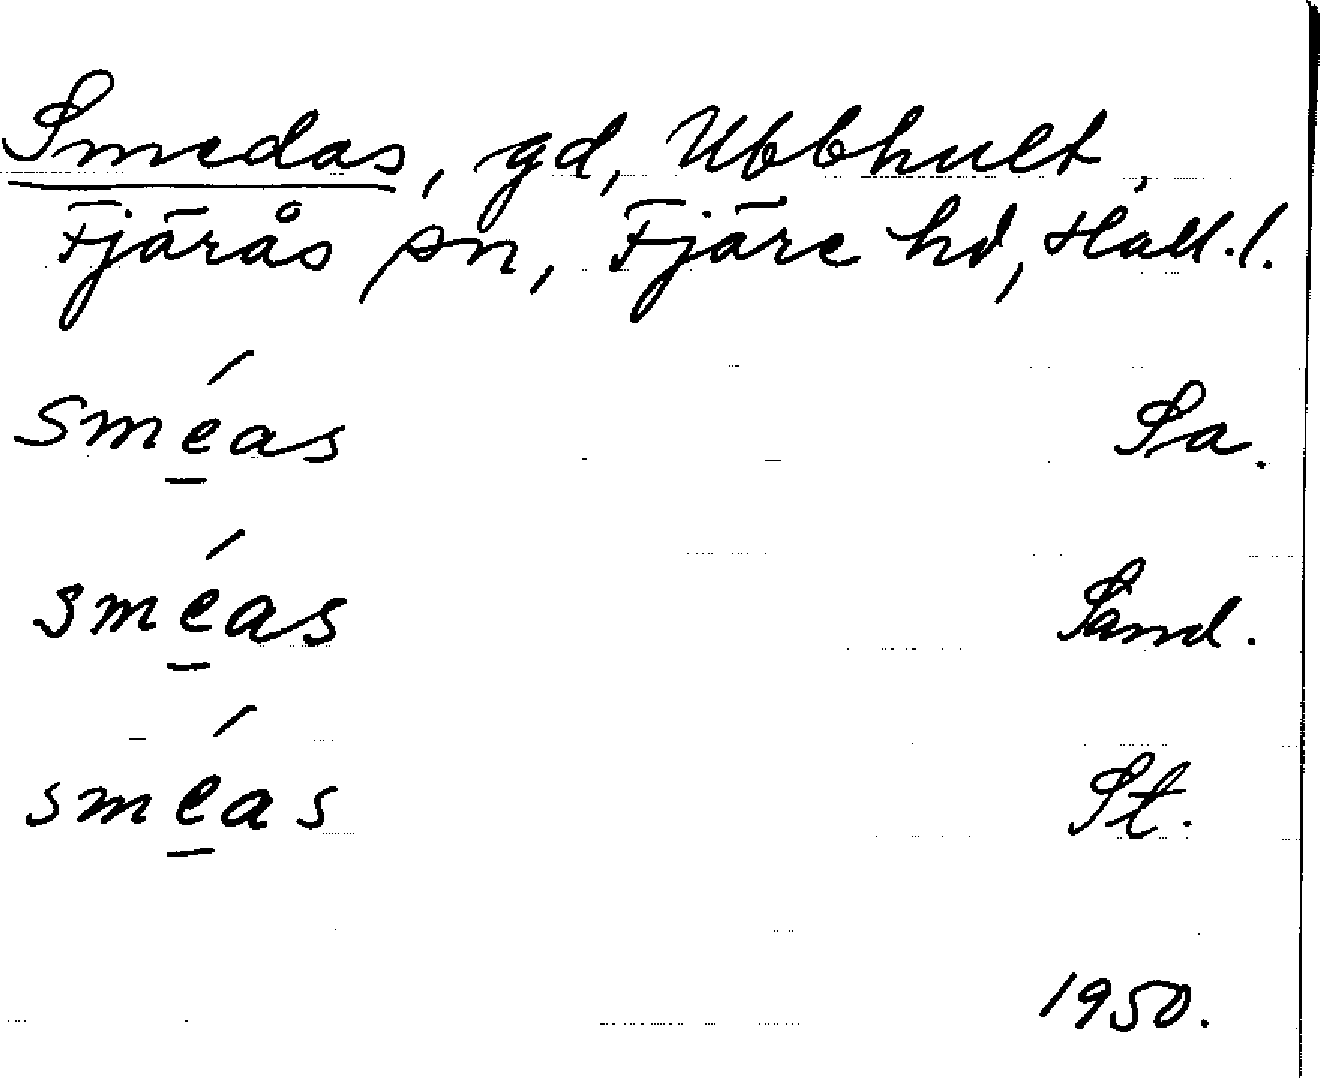 Smedas, gd, Ubbhult,
Fjärås sn, Fjäre hd, Hall.l.
sméas Sa.
sméas Sand.
sméas St.
1950.